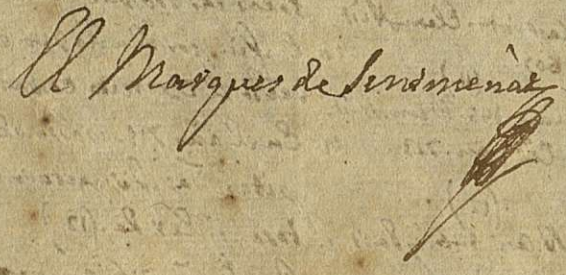 El Marques de Sentmenàt